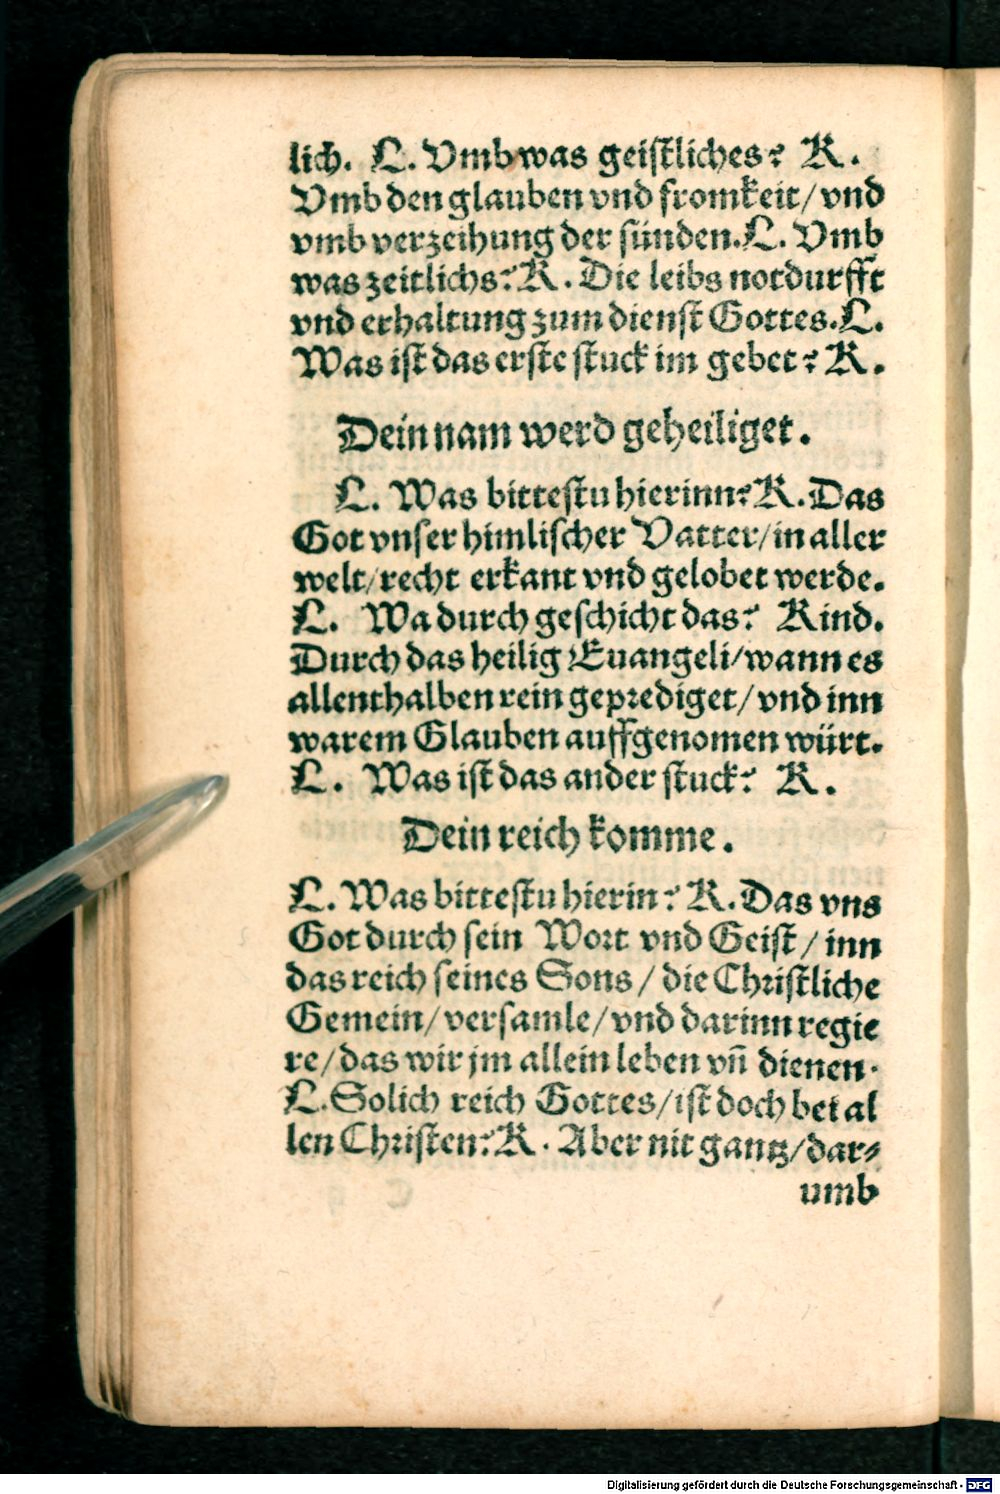 lich. L. Vmb was geistliches? K.
Vmb den glauben vnd fromkeit/ vnd
vmb verzeihung der sünden. L. Vmb
was zeitlichs? K. Die leibs notdurfft
vnd erhaltung zum dienst Gottes. L.
Was ist das erste stuck im gebet? K.
Dein nam werd geheiliget.
L. Was bittestu hierinn? K. Das
Got vnser himlischer Vatter/ in aller
welt/ recht erkant vnd gelobet werde.
L. Wa durch geschicht das? Kind.
Durch das heilig Euangeli/ wann es
allenthalben rein geprediget/ vnd inn
warem Glauben auffgenomen würt.
L. Was ist das ander stuck? K.
Dein reich komme.
L. Was bittestu hierin? K. Das vns
Got durch sein Wort vnd Geist/ inn
das reich seines Sons/ die Christliche
Gemein/ versamle/ vnd darinn regie
re/ das wir jm allein leben vn̄ dienen.
L. Solich reich Gottes/ ist doch bei al
len Christen? K. Aber nit gantz/ dar-
umb
Digitalisierung gefördert durch die Deutsche Forschungsgemeinschaft - DFG